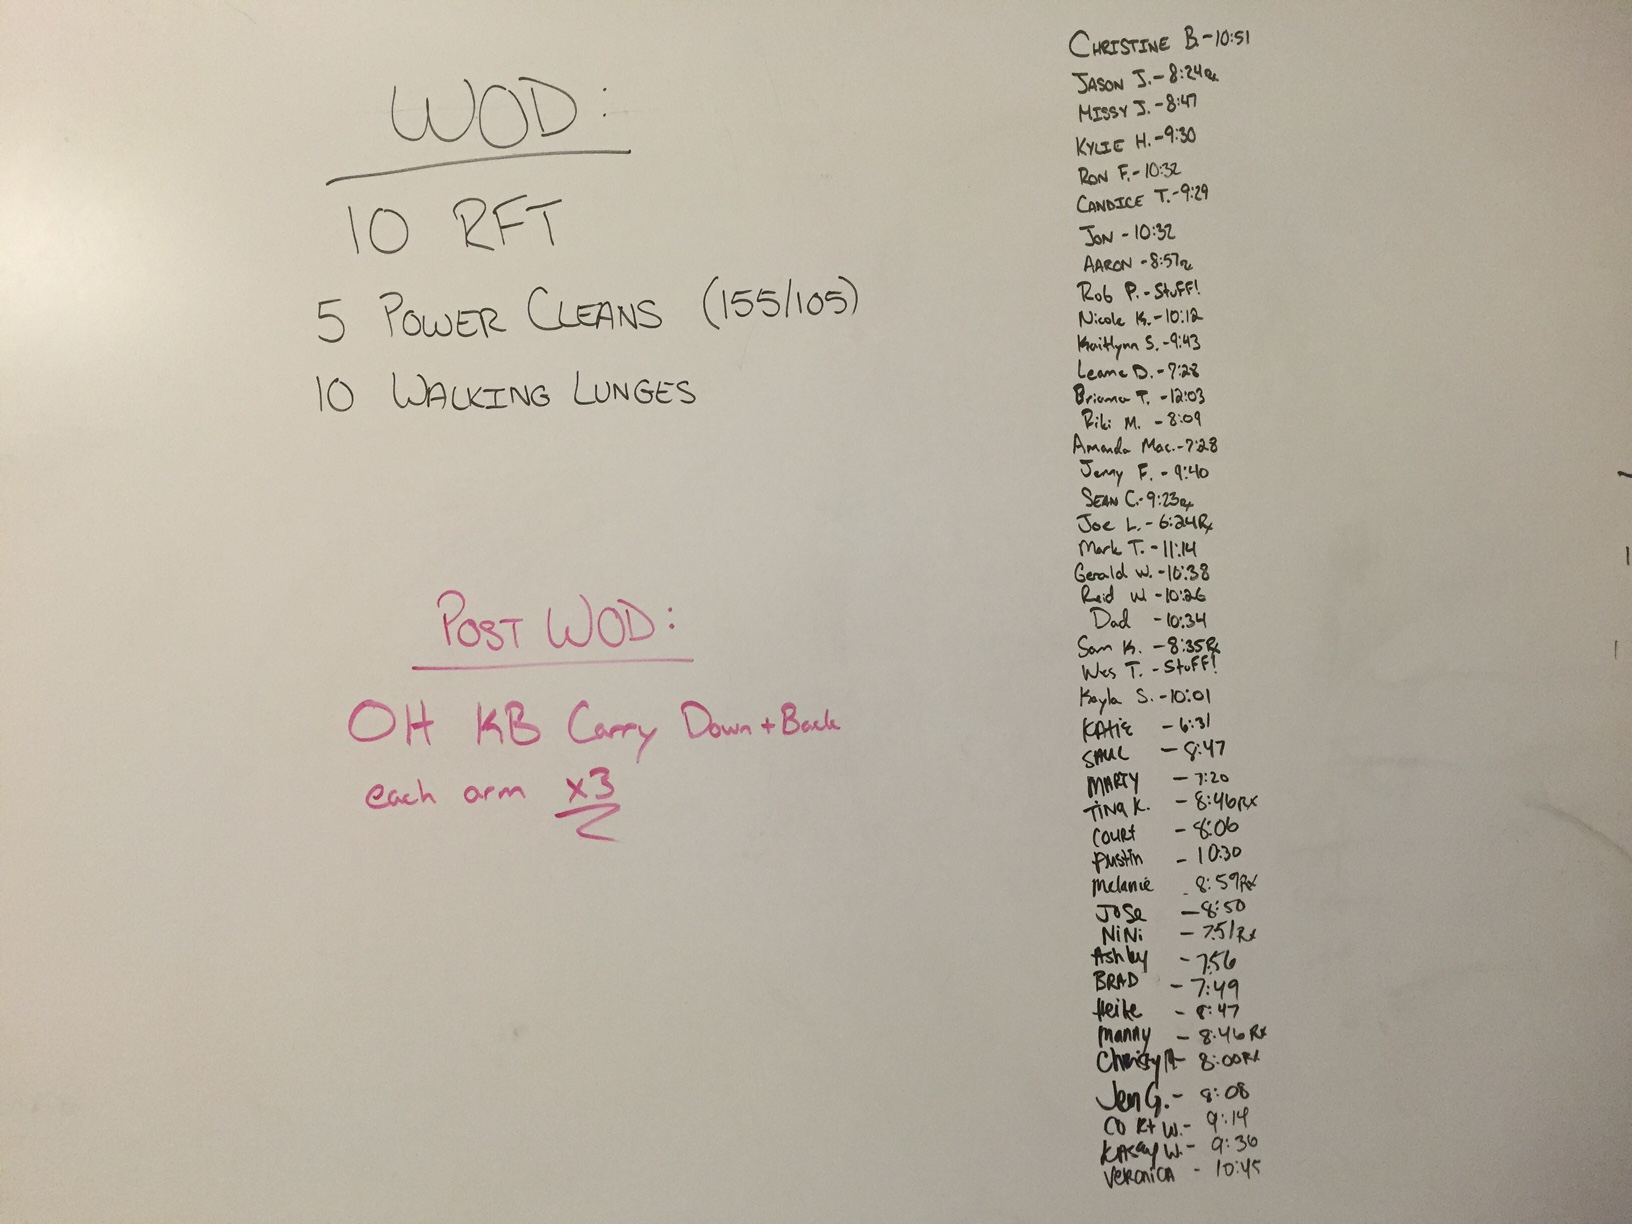 WOD:
10 RFT
5 POWER CLEANS (155/105)
10 WALKING LUNGES
POST WOD:
OH KB Carry Down + Back
each arm x3
CHRISTINE B. - 10:51
JASON J. - 8:24 Rx
MISSY J. - 8:47
KYLIE H. - 9:30
RON F. - 10:32
CANDICE T. - 9:29
JON - 10:32
AARON - 8:57 Rx
Rob P. - Stuff!
Nicole K. - 10:12
Kaitlynn S. - 9:43
Leanne D. - 7:28
Brianna T. - 12:03
Riki M. - 8:09
Amanda Mac. - 7:28
Jenny F. - 9:40
SEAN C. - 9:23 Rx
Joe L. - 6:24 Rx
Mark T. - 11:14
Gerald W. - 10:38
Reid W - 10:26
Dad - 10:34
Sam K. - 8:35 Rx
Wes T. - Stuff!
Kayla S. - 10:01
KATie - 6:31
SAUL - 8:47
MARTY - 7:20
TiNa K. - 8:46 Rx
COURt - 8:06
Dustin - 10:30
Melanie - 8:59 Rx
JOSe - 8:50
NiNi - 7:51 Rx
Ashby - 7:56
BRAD - 7:49
Heike - 8:47
Manny - 8:46 Rx
8:00 Rx
Jen G. - 8:08
CORt W. - 9:14
KAsey W. - 9:36
VERONICA - 10:45